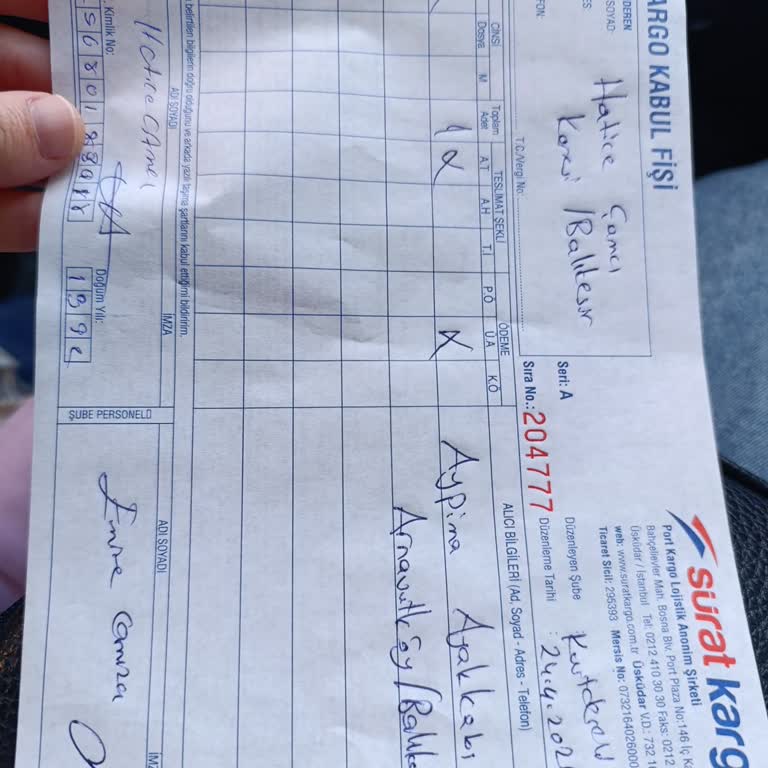 ARGO KABUL FİŞİ
DEREN
SOYAD:
Hatice Çamcı
Karesi / Balıkesir
FON:
T.C./Vergi No:
sürat karg
Port Kargo Lojistik Anonim Şirketi
Bahçelievler Mah. Bosna Blv. Port Plaza No:146 İç K
Üsküdar / İstanbul Tel: 0212 410 30 30 Faks: 0212
web: www.suratkargo.com.tr Üsküdar V.D.: 732 1
Ticaret Sicil: 296393 Mersis No: 0732164026000
Seri: A
Sıra No.: 204777
Düzenleyen Şube
Düzenleme Tarihi : 24.4.202
CİNSİ
Dosya M
Toplam
Adet
TESLİMAT ŞEKLİ
A.T A.H T.İ
ÖDEME
P.Ö Ü.A K.Ö
ALICI BİLGİLERİ (Ad, Soyad - Adres - Telefon)
1 X X Aypina Ayakkabı
belirtilen bilgilerin doğru olduğunu ve arkada yazılı taşıma şartlarını kabul ettiğimi bildiririm.
ADI SOYADI
İMZA
Hatice Çamcı
Kimlik No:
Doğum Yılı:
ŞUBE PERSONELİ
ADI SOYADI
İMZ
Emre